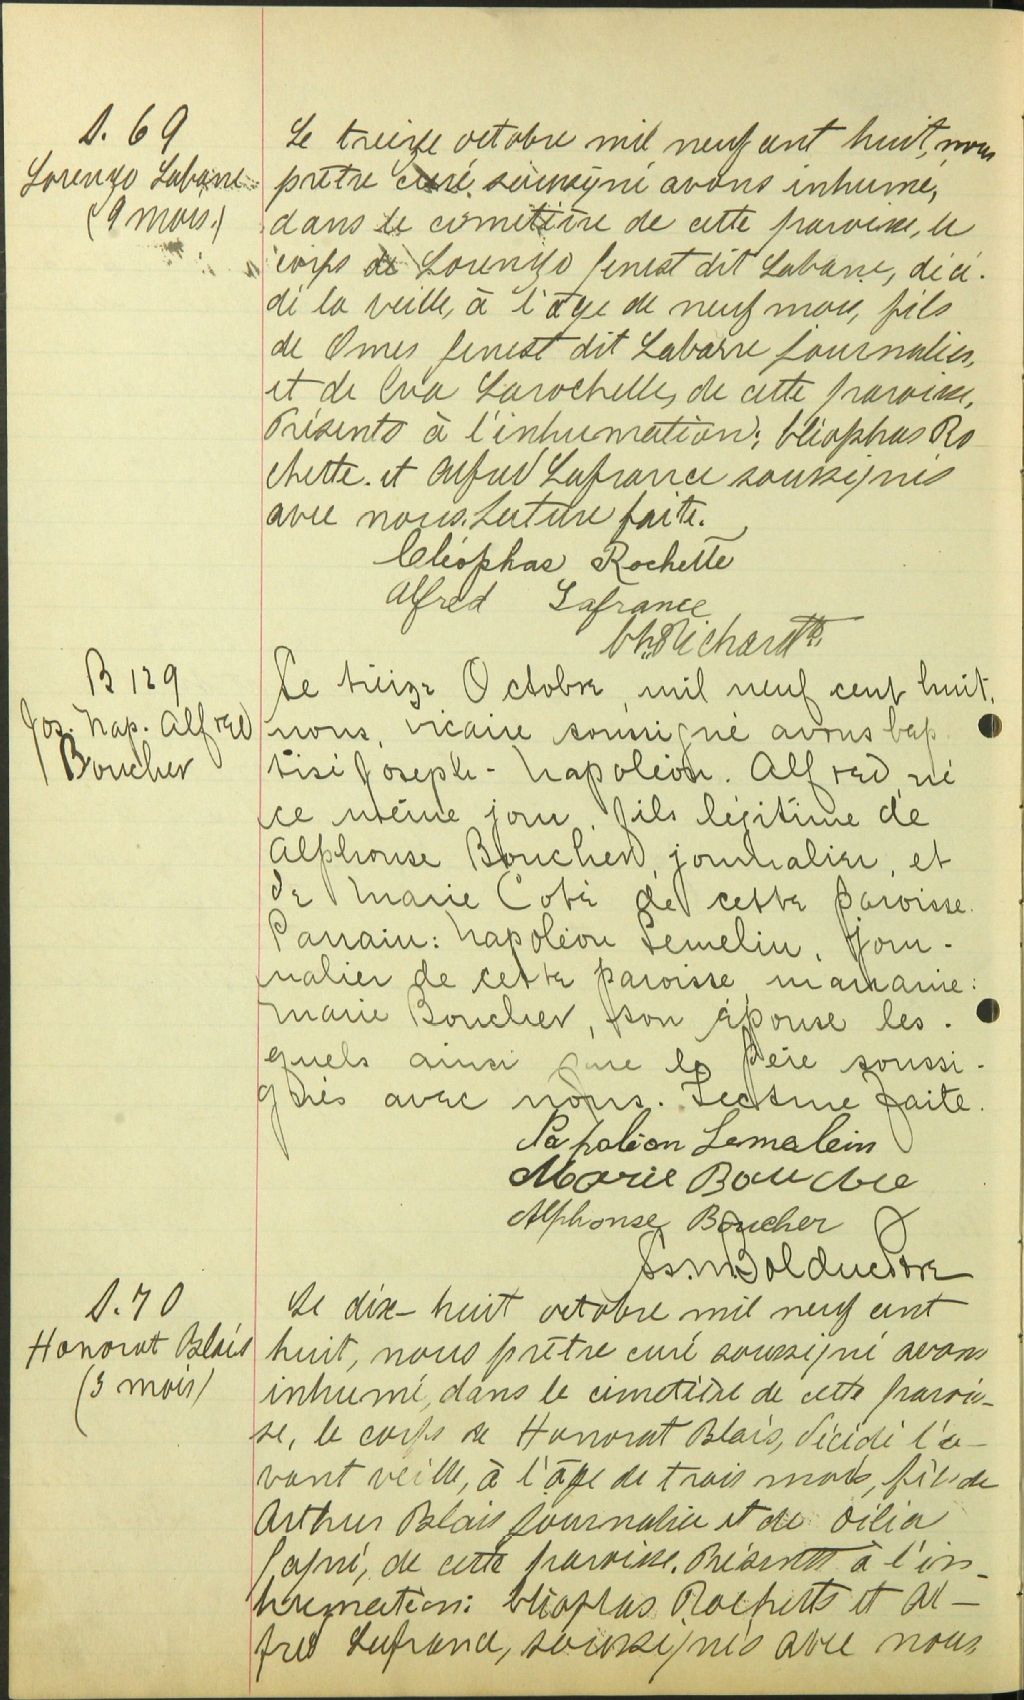 S. 69
Lorenzo Labarre
(9 mois.)
Le treize octobre mil neuf cent huit, nous
prêtre curé soussigné avons inhumé,
dans le cimetière de cette paroisse, le
corps de Lorenzo Genest dit Labarre, décé-
dé la veille, à l'âge de neuf mois, fils
de Omer Genest dit Labarre journalier,
et de Eva Larochelle, de cette paroisse,
Présents à l'inhumation: Cléophas Ro
chette. et Alfred Lafrance soussignés
avec nous. Lecture faite.
Cléophas Rochette
Alfred Lafrance
Ch. Richard Ptre
B 129
Jos. Nap. Alfred
Boucher
Le treize Octobre mil neuf cent huit,
nous, vicaire soussigné avons bap
tisé Joseph-Napoléon. Alfred né
ce même jour, fils légitime de
Alphonse Boucher, journalier, et
de Marie Coté de cette paroisse.
Parrain: Napoléon Lemelin, jour-
nalier de cette paroisse, marraine:
Marie Boucher, son épouse les-
quels ainsi que le père soussi-
gnés avec nous. Lecture faite.
Napoléon Lemelein
Marie Bouche
Alphonse Boucher
Bolduc Ptre
S. 70
Honorat Blais
(3 mois)
Le dix-huit octobre mil neuf cent
huit, nous prêtre curé soussigné avons
inhumé, dans le cimetière de cette parois-
se, le corps de Honorat Blais, décédé l'a-
vant veille, à l'âge de trois mois, fils de
Arthur Blais journalier et de Délia
de cette paroisse. Présents à l'in-
humation: Cléophas Rochette et Al-
fred Lafrance, soussignés avec nous